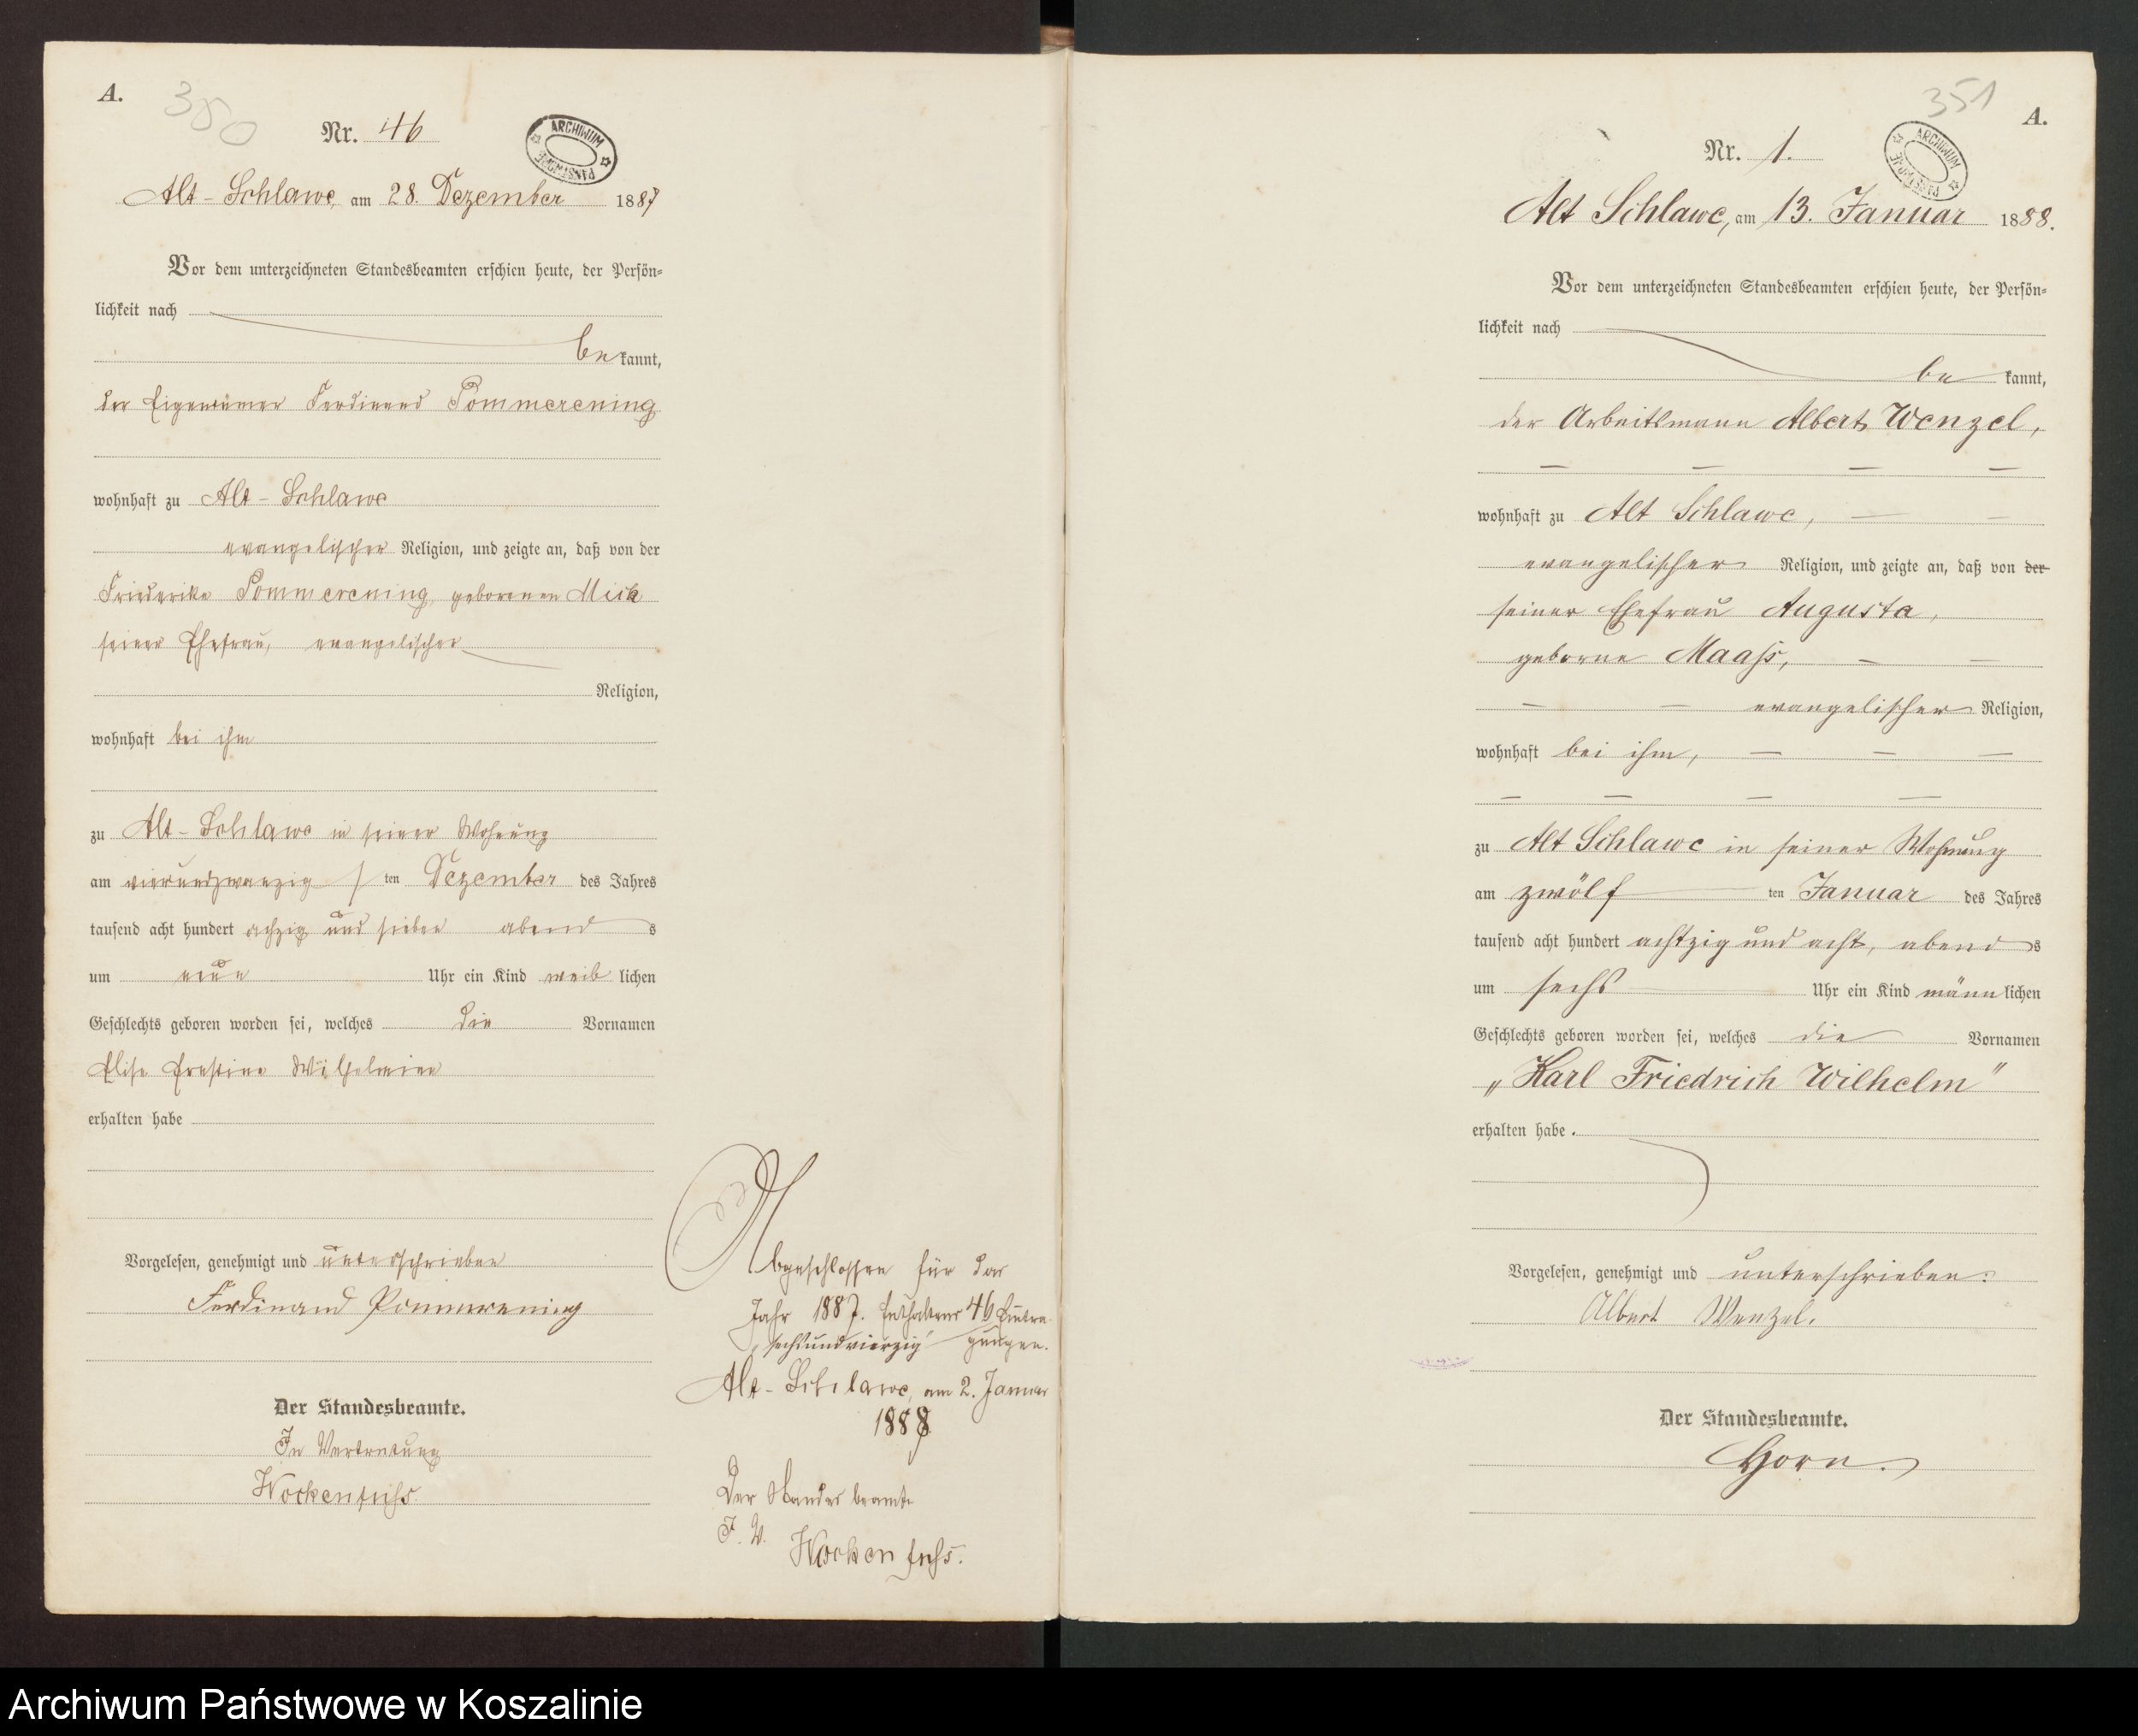 A.
350
Nr. 46
ARCHIWUM PAŃSTWOWE
Alt-Schlawe, am 28. Dezember 1887
Vor dem unterzeichneten Standesbeamten erschien heute, der Persön=
lichkeit nach
be kannt,
der Eigentümer Ferdinand Pommerening
wohnhaft zu Alt-Schlawe
evangelischer Religion, und zeigte an, daß von der
Friederike Pommerening geborenen
seiner Ehefrau, evangelischer
Religion,
wohnhaft bei ihm
zu Alt-Schlawe in seiner Wohnung
am vierundzwanzig ten Dezember des Jahres
tausend acht hundert achzig und sieben abend s
um neun Uhr ein Kind weib lichen
Geschlechts geboren worden sei, welches die Vornamen
Elise Ernstine Wilhelmine
erhalten habe
Vorgelesen, genehmigt und unterschrieben
Ferdinand Pommerening
Der Standesbeamte.
In Vertretung
Wockenfuhs
Abgeschlossen für das
Jahr 1887. Enthaltend 46 Eintra
„sechsundvierzig“ gungen.
Alt-Schlawe, am 2. Januar
1888
Der Standesbeamte
I. V.
Wockenfuhs.
351
A.
Nr. 1.
ARCHIWUM PAŃSTWOWE
Alt Schlawe, am 13. Januar 1888.
Vor dem unterzeichneten Standesbeamten erschien heute, der Persön=
lichkeit nach
be kannt,
der Arbeitsmann Albert Wenzel,
wohnhaft zu Alt Schlawe,
evangelischer Religion, und zeigte an, daß von der
seiner Ehefrau Augusta,
geborne Maaß,
evangelischer Religion,
wohnhaft bei ihm,
zu Alt Schlawe in seiner Wohnung
am zwölf ten Januar des Jahres
tausend acht hundert achtzig und acht, abend s
um sechs Uhr ein Kind männ lichen
Geschlechts geboren worden sei, welches die Vornamen
„Karl Friedrich Wilhelm"
erhalten habe.
Vorgelesen, genehmigt und unterschrieben.
Albert Wenzel.
Der Standesbeamte.
Horn.
Archiwum Państwowe w Koszalinie